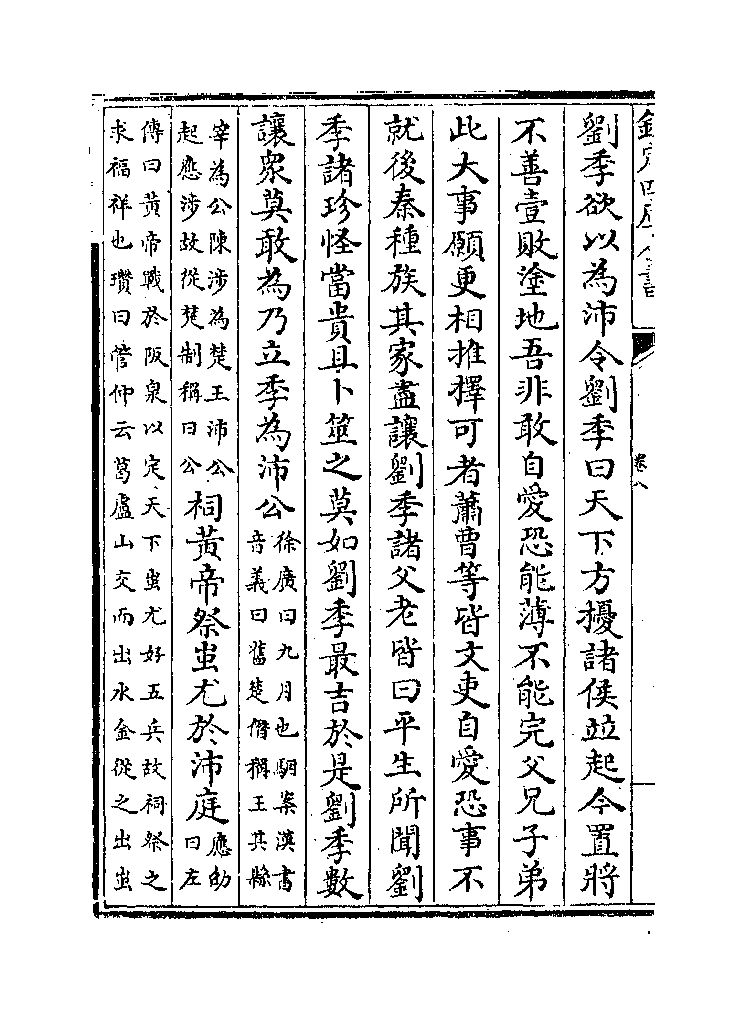 欽定四庫全書
卷八
劉季欲以為沛令劉季曰天下方擾諸侯竝起今置將
不善壹敗塗地吾非敢自愛恐能薄不能完父兄子弟
此大事願更相推擇可者蕭曹等皆文吏自愛恐事不
就後秦種族其家盡讓劉季諸父老皆曰平生所聞劉
季諸珍怪當貴且卜筮之莫如劉季最吉於是劉季數
讓衆莫敢為乃立季為沛公
徐廣曰九月也駰案漢書
音義曰舊楚僭稱王其縣
宰為公陳涉為楚王沛公
起應涉故從楚制稱曰公
祠黃帝祭蚩尤於沛庭
應劭
曰左
傳曰黃帝戰於阪泉以定天下蚩尤好五兵故祠祭之
求福祥也瓚曰管仲云葛盧山交而出水金從之出蚩